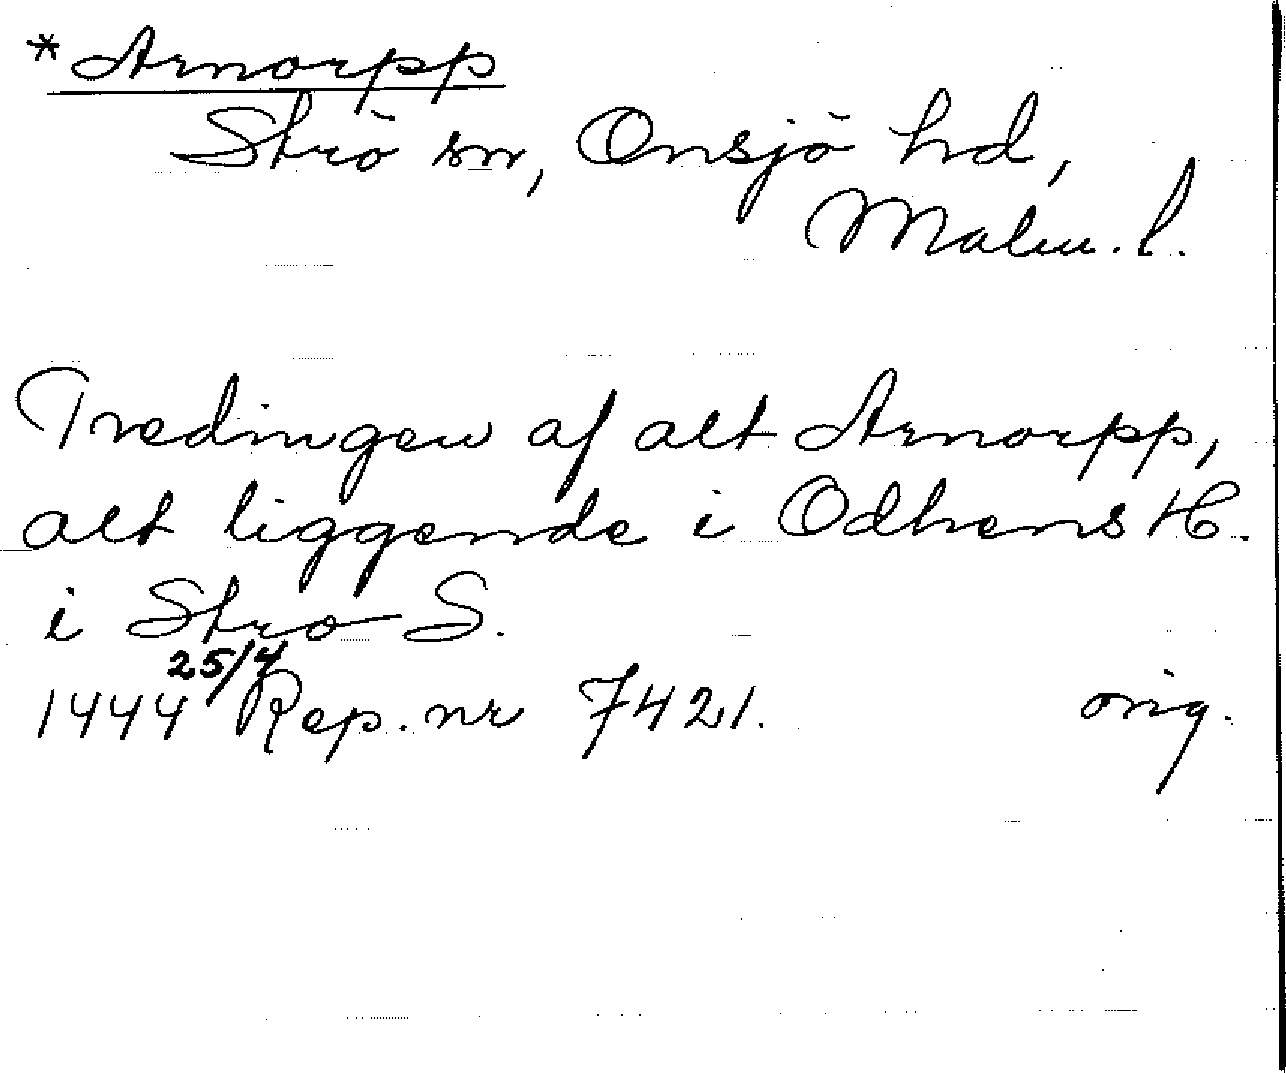 *Arnorpp
Strö sn, Onsjö hd,
Malm. l.
Tredingen af alt Arnorpp,
alt liggende i Odhens H.
i Stro S.
1444 25/4 Rep. nr 7421. orig.